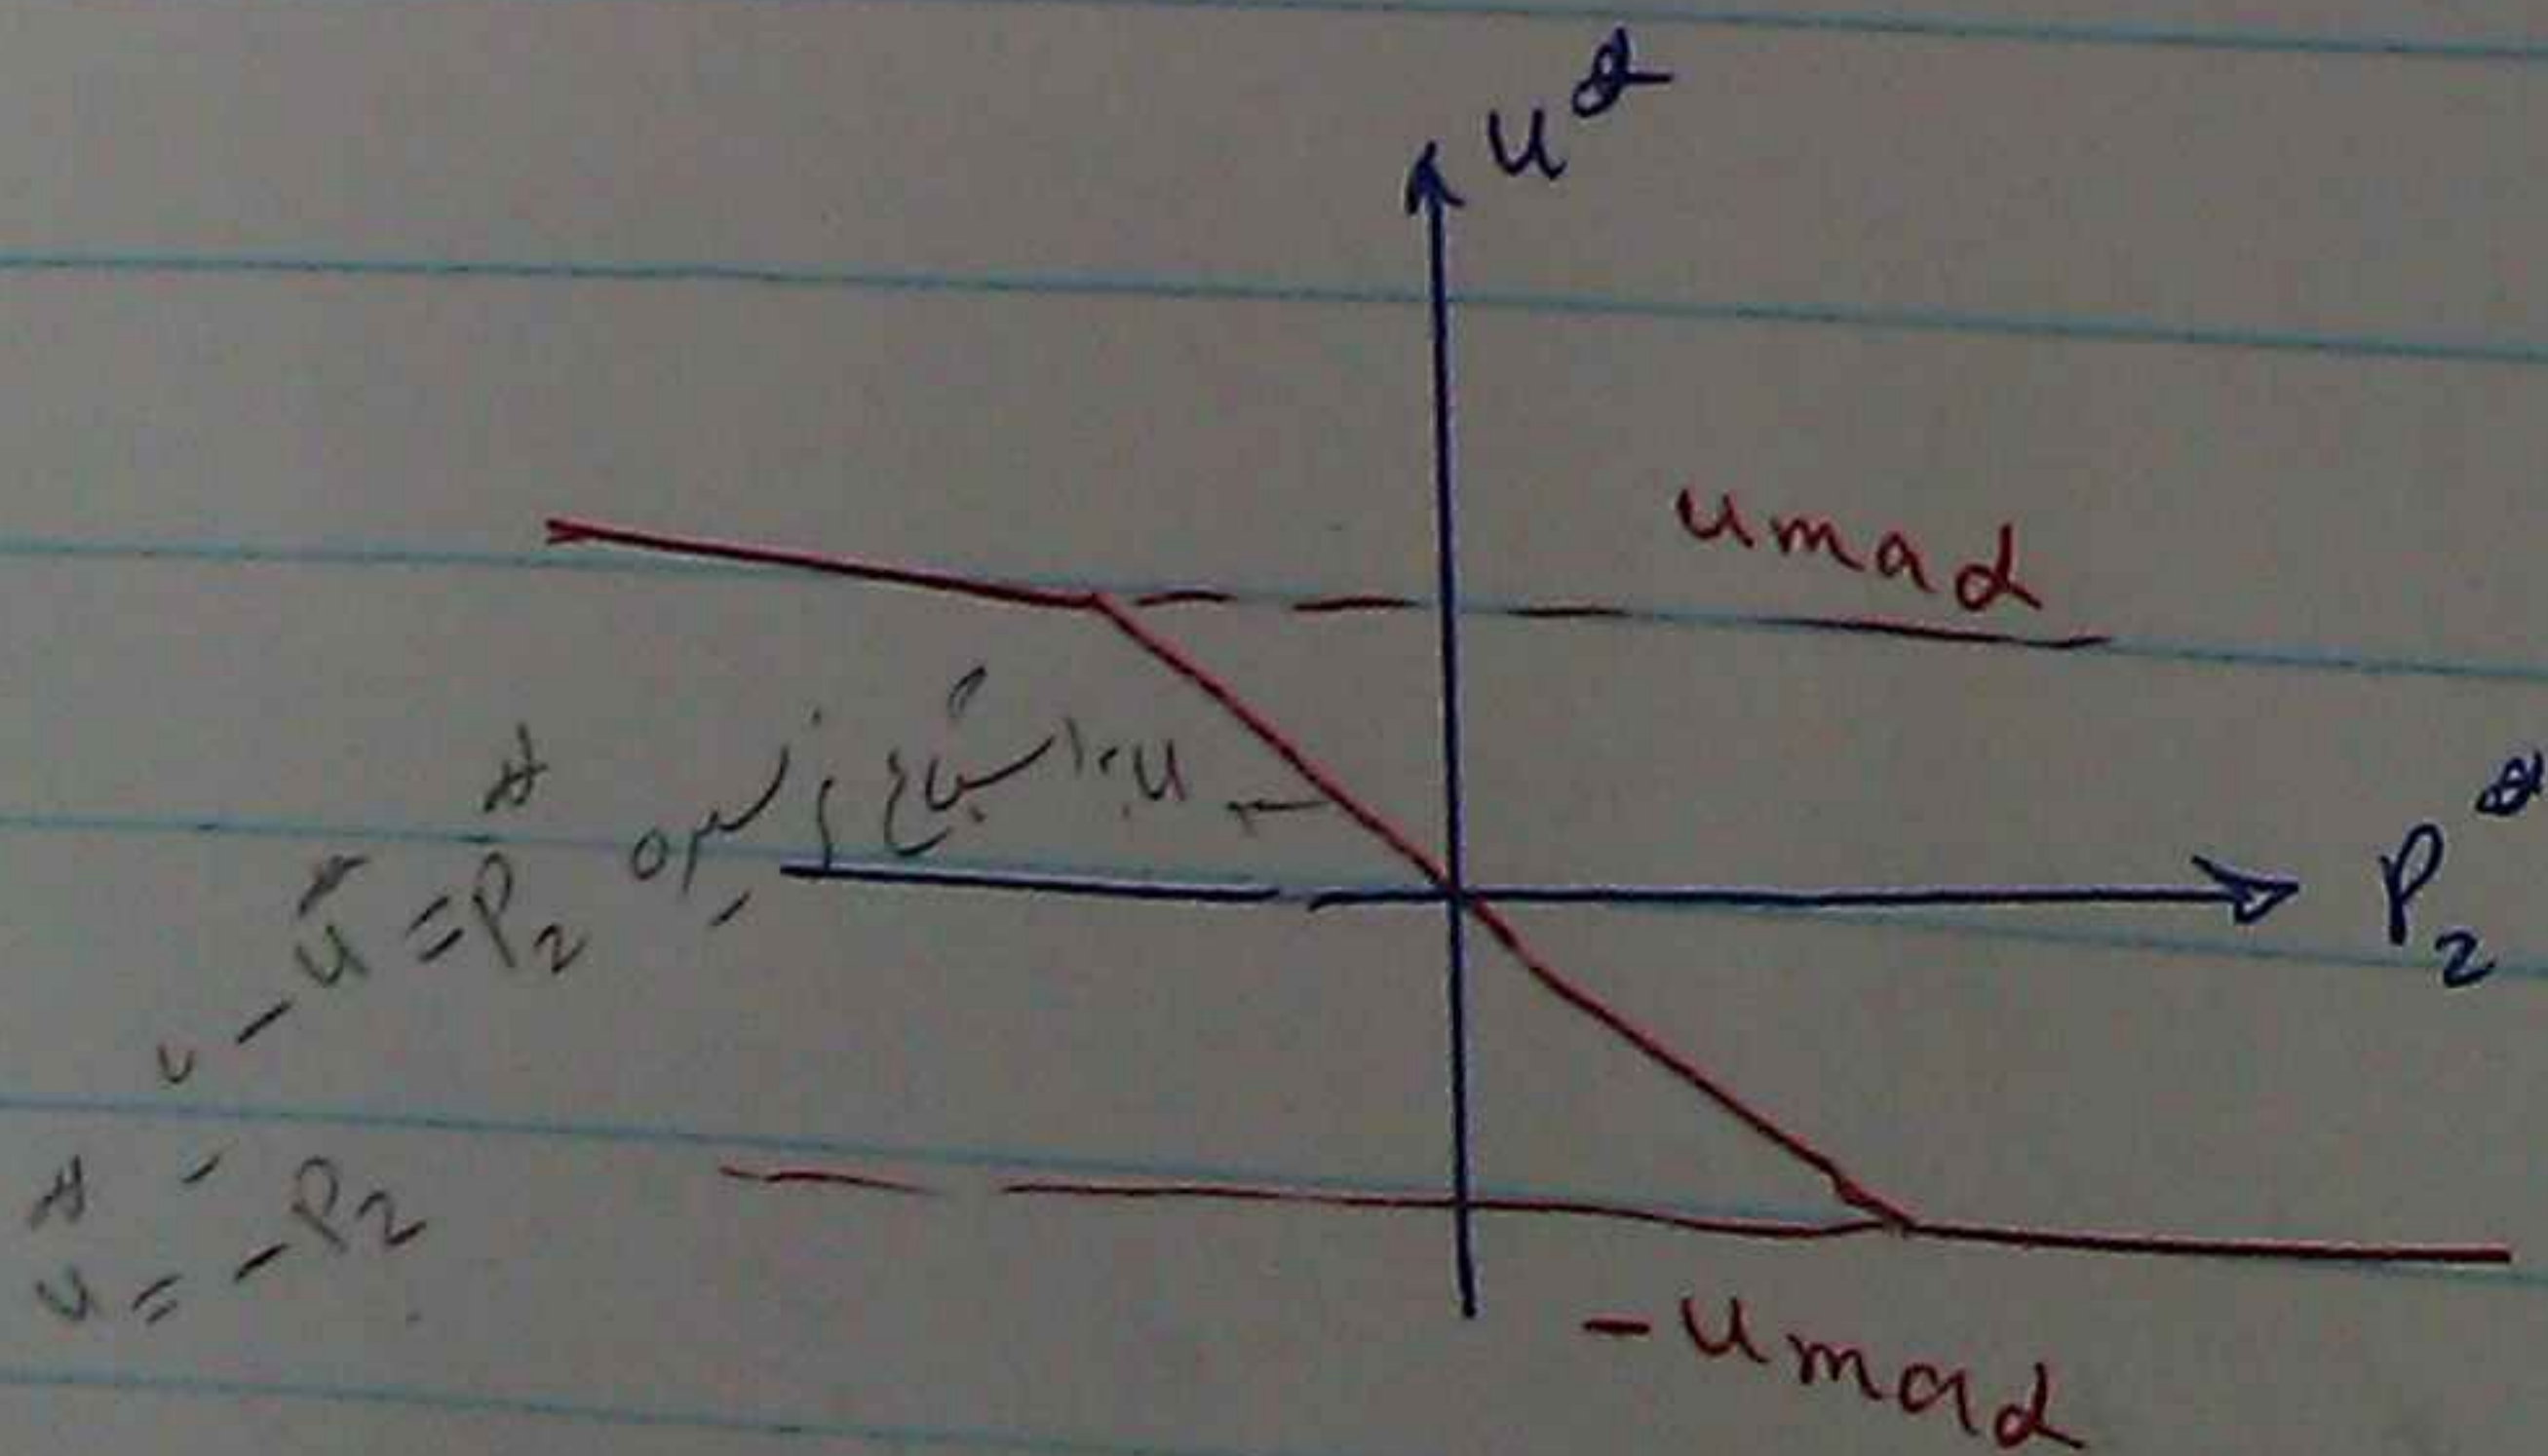 u*
umax
u به اشباع نرسیده
-u* = P2*
P2*
u* = -P2
-umax